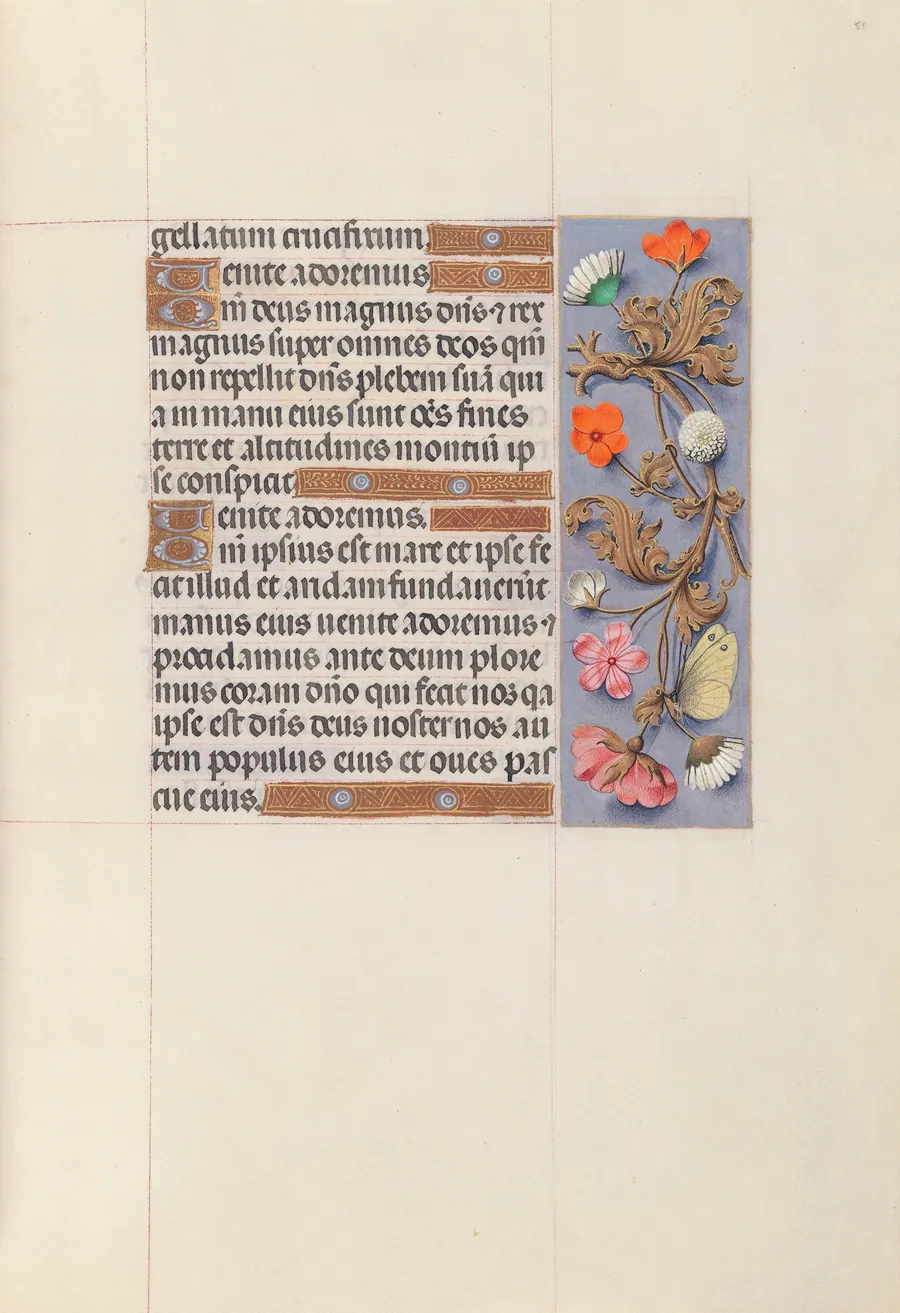 51
gellatum crucifixum.
Venite adoremus
Qm̄ deus magnus dn̄s ⁊ rex
magnus super omnes deos qm̄
non repellit dn̄s plebem suā qui
a in manu eius sunt oēs fines
terre et altitudines montiū ip
se conspicit
Venite adoremus.
Qm̄ ipsius est mare et ipse fe
cit illud et aridam fundauerūt
manus eius uenite adoremus ⁊
procidamus ante deum plore
mus coram dn̄o qui fecit nos qa
ipse est dn̄s deus noster nos au
tem populus eius et oues pas
cue eius.